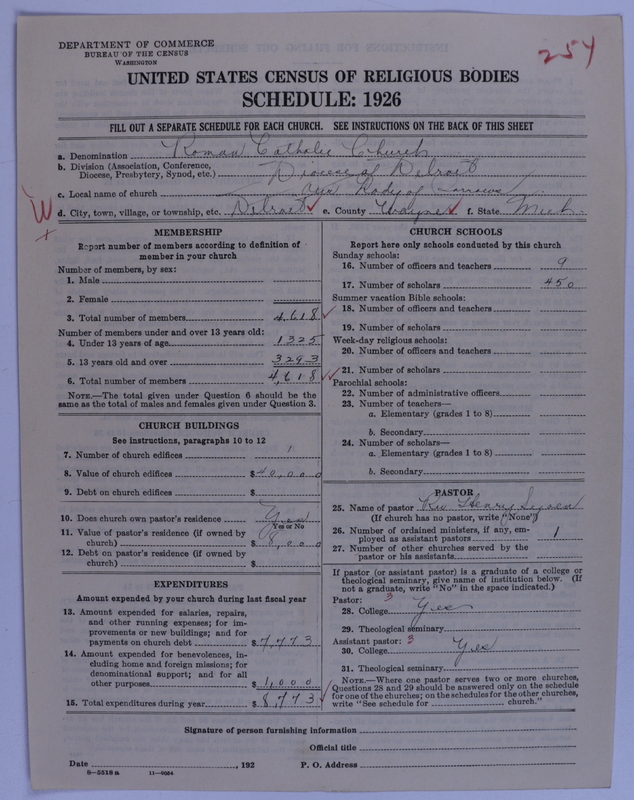 DEPARTMENT OF COMMERCE
BUREAU OF THE CENSUS
WASHINGTON
254
UNITED STATES CENSUS OF RELIGIOUS BODIES
SCHEDULE: 1926
FILL OUT A SEPARATE SCHEDULE FOR EACH CHURCH. SEE INSTRUCTIONS ON THE BACK OF THIS SHEET
a. Denomination Roman Catholic Church
b. Division (Association, Conference, Diocese, Presbytery, Synod, etc.) Diocese of Detroit
c. Local name of church Our Lady of Sorrows
d. City, town, village, or township, etc. Detroit e. County Wayne f. State Mich.
MEMBERSHIP
Report number of members according to definition of
member in your church
Number of members, by sex:
1. Male
2. Female
3. Total number of members 4,618
Number of members under and over 13 years old:
4. Under 13 years of age 1325
5. 13 years old and over 3293
6. Total number of members 4,618
NOTE.—The total given under Question 6 should be
same as the total of males and females given under Question 3.
CHURCH BUILDINGS
See instructions, paragraphs 10 to 12
7. Number of church edifices 1
8. Value of church edifices $40,000
9. Debt on church edifices $
10. Does church own pastor's residence Yes
Yes or No
11. Value of pastor's residence (if owned by
church) $8,000
12. Debt on pastor's residence (if owned by
church) $
EXPENDITURES
Amount expended by your church during last fiscal year
13. Amount expended for salaries, repairs,
and other running expenses; for im-
provements or new buildings; and for
payments on church debt $7,773
14. Amount expended for benevolences, in-
cluding home and foreign missions; for
denominational support; and for all
other purposes $1,000
15. Total expenditures during year $8,773
CHURCH SCHOOLS
Report here only schools conducted by this church
Sunday schools:
16. Number of officers and teachers 9
17. Number of scholars 450
Summer vacation Bible schools:
18. Number of officers and teachers
19. Number of scholars
Week-day religious schools:
20. Number of officers and teachers
21. Number of scholars
Parochial schools:
22. Number of administrative officers
23. Number of teachers—
a. Elementary (grades 1 to 8)
b. Secondary
24. Number of scholars—
a. Elementary (grades 1 to 8)
b. Secondary
PASTOR
25. Name of pastor Rev Henry
(If church has no pastor, write "None")
26. Number of ordained ministers, if any, em-
ployed as assistant pastors 1
27. Number of other churches served by the
pastor or his assistants
If pastor (or assistant pastor) is a graduate of a college or
theological seminary, give name of institution below. (If
not a graduate, write "No" in the space indicated.)
Pastor: 3
28. College Yes
29. Theological seminary
Assistant pastor: 3
30. College Yes
31. Theological seminary
NOTE.—Where one pastor serves two or more churches,
Questions 28 and 29 should be answered only on the schedule
for one of the churches; on the schedules for the other churches,
write "See schedule for church."
Signature of person furnishing information
Official title
Date , 192 P. O. Address
8—5518a 11—9034